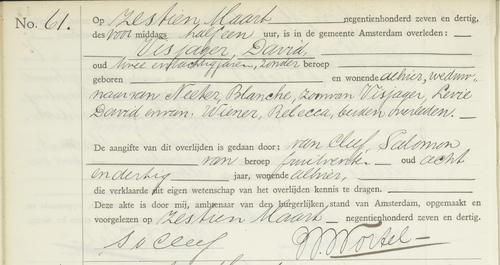 No. 61.
Op zestien Maart negentienhonderd zeven en dertig,
des voor middags half een uur, is in de gemeente Amsterdam overleden:
Visjager, David,
oud twee en tachtig jaren, zonder beroep
geboren en wonende alhier, weduw-
naar van Neeter, Blanche, zoon van Visjager, Levie
David en van Wiener, Rebecca, beiden overleden.
De aangifte van dit overlijden is gedaan door: van Cleef, Salomon
van beroep oud acht
en dertig jaar, wonende alhier,
die verklaarde uit eigen wetenschap van het overlijden kennis te dragen.
Deze akte is door mij, ambtenaar van den burgerlijken stand van Amsterdam, opgemaakt en
voorgelezen op zestien Maart negentienhonderd zeven en dertig.
S v Cleef Wortel